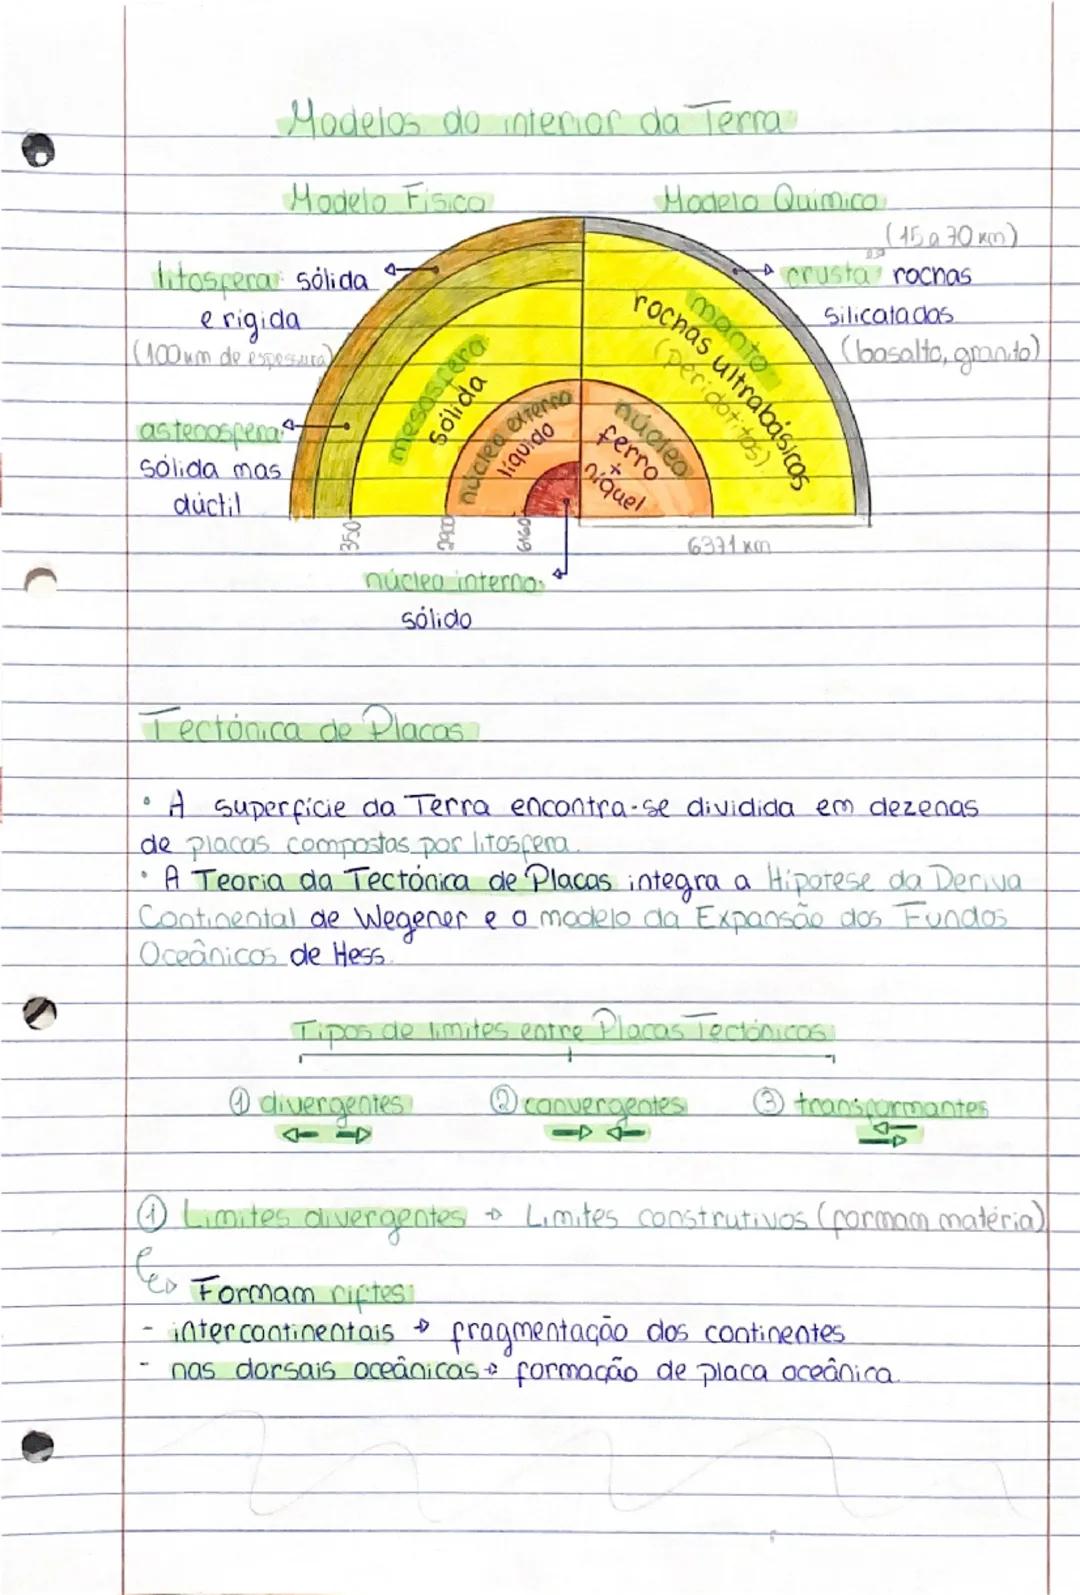 Modelos do interior da Terra
Modelo Físico
Modelo Químico
(15 a 70 km)
litosfera: sólida
e rígida
(100 km de espessura)
crusta: rochas
silicatadas
(basalto, granito)
manto
rochas ultrabásicas
(Peridotitos)
mesosfera
sólida
astenosfera:
sólida mas
dúctil
núcleo externo
líquido
núcleo
ferro
+
níquel
350
2900
6371 km
núcleo interno:
sólido
Tectónica de Placas
• A superfície da Terra encontra-se dividida em dezenas
de placas compostas por litosfera.
• A Teoria da Tectónica de Placas integra a Hipótese da Deriva
Continental de Wegener e o modelo da Expansão dos Fundos
Oceânicos de Hess.
Tipos de limites entre Placas Tectónicas
① divergentes
② convergentes
③ transformantes
① Limites divergentes → Limites construtivos (formam matéria)
↳ Formam riftes:
- intercontinentais → fragmentação dos continentes
- nas dorsais oceânicas → formação de placa oceânica.